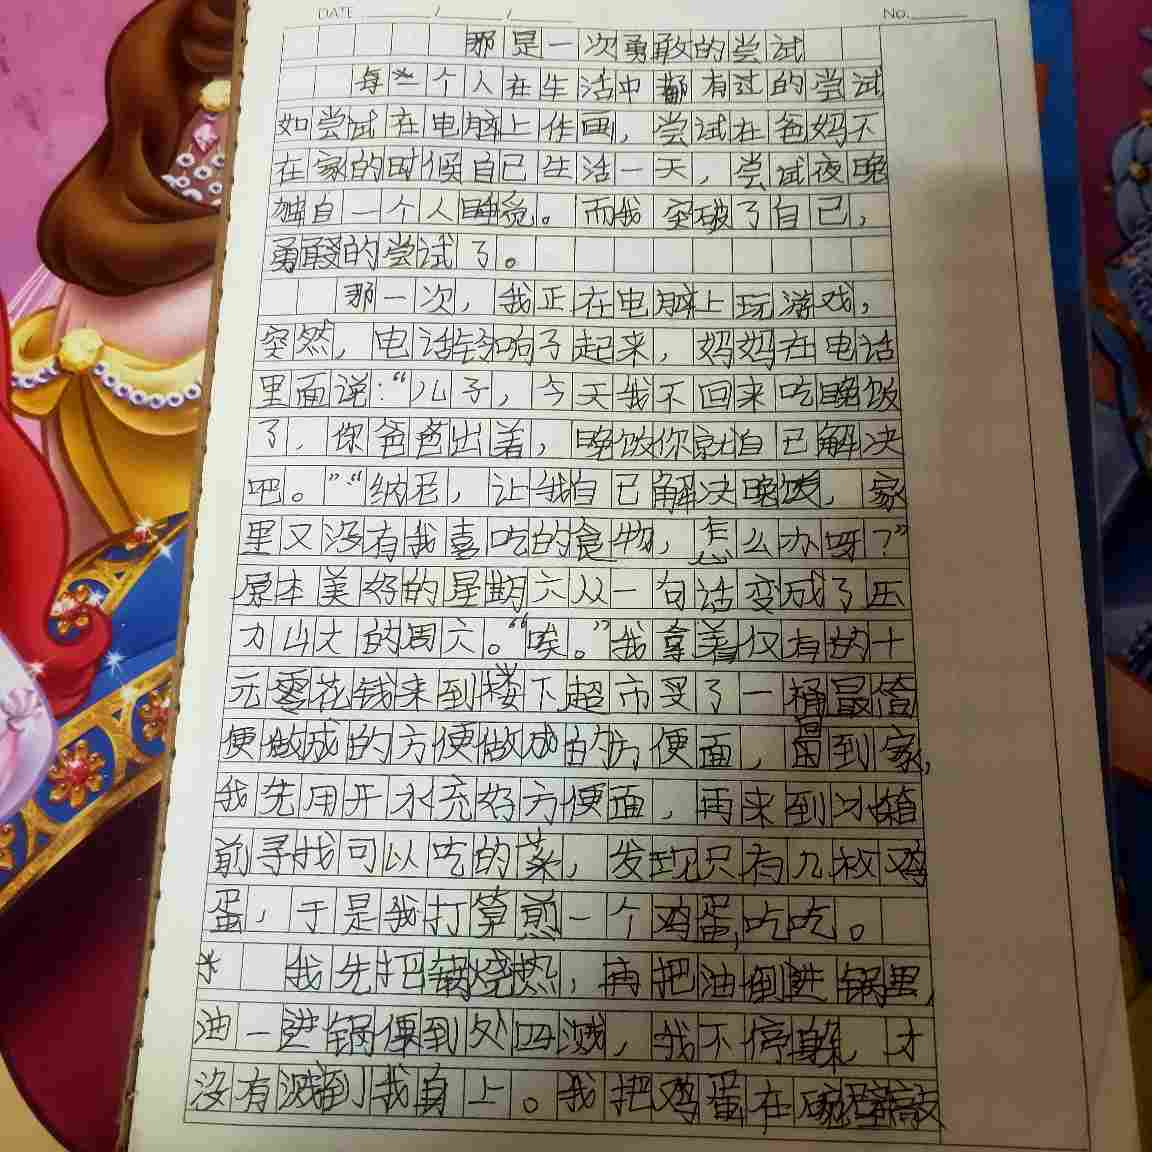 DATE / /
NO.
那是一次勇敢的尝试
每一个人在生活中都有过的尝试
如尝试在电脑上作画，尝试在爸妈不
在家的时候自己生活一天，尝试夜晚
独自一个人睡觉。而我突破了自己，
勇敢的尝试了。
那一次，我正在电脑上玩游戏，
突然，电话铃响了起来，妈妈在电话
里面说：“儿子，今天我不回来吃晚饭
了，你爸爸出差，晚饭你就自己解决
吧。”“纳尼，让我自己解决晚饭，家
里又没有我喜吃的食物，怎么办呀？”
原本美好的星期六从一句话变成了压
力山大的周六。“唉。”我拿着仅有的十
元零花钱来到楼下超市买了一桶最简
便做成的方便做成的方便面，回到家，
我先用开水充好方便面，再来到冰箱
前寻找可以吃的菜，发现只有几枚鸡
蛋，于是我打算煎一个鸡蛋吃吃。
我先把锅烧热，再把油倒进锅里，
油一进锅便到处四溅，我不停躲，才
没有溅到我身上。我把鸡蛋在